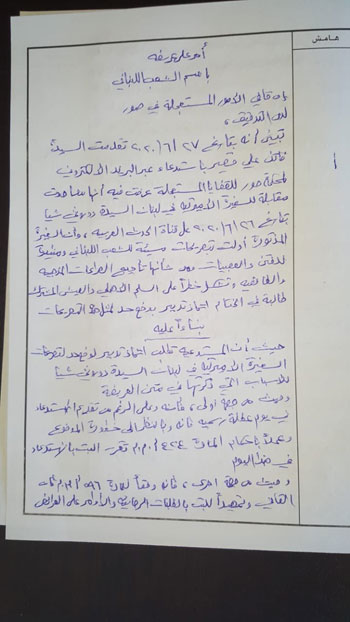 هامش
أمر على عريضة
باسم الشعب اللبناني
إن قاضي الأمور المستعجلة في صور
لدى التدقيق،
تبين أنه بتاريخ ٢٧/٦/٢٠٢٠ تقدمت السيدة
فاتن علي قصير باستدعاء عبر البريد الالكتروني
لمحكمة صور للقضايا المستعجلة عرضت فيه أنها شاهدت
مقابلة للسفيرة الأميركية في لبنان السيدة دوروثي شيا
بتاريخ ٢٦/٦/٢٠٢٠ على قناة الحدث العربية، وان السفيرة
المذكورة أدلت بتصريحات مسيئة للشعب اللبناني ومثيرة
للفتن والعصبيات ومن شأنها تأجيج الصراعات المذهبية
والطائفية وتشكل خطراً على السلم الأهلي والعيش المشترك
طالبة في الختام اتخاذ تدبير بوضع حد لمثل هذه التصريحات
بناءً عليه
حيث أن المستدعية تطلب اتخاذ تدبير لوضع حد لتصريحات
السفيرة الأميركية في لبنان السيدة دوروثي شيا
للأسباب التي ذكرتها في متن العريضة
وحيث من جهة أولى، فانه وعلى الرغم من تقديم الاستدعاء
في يوم عطلة رسمية فانه وبالنظر الى خطورة الموضوع
وعملاً بأحكام المادة ٤٢٤/أ.م.م تقرر البت بالاستدعاء
في هذا اليوم
وحيث من جهة أخرى، فانه وفقاً للمادة ٥٩٦/أ.م.م فان
القاضي وتمهيداً للبت بالطلبات الرجائية والأوامر على العرائض